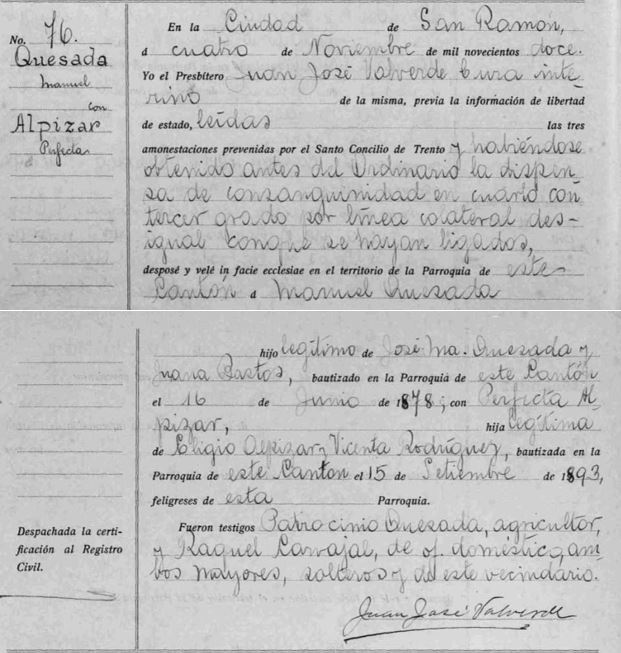 No. 76.
Quesada
Manuel
con
Alpizar
Perfecta
En la Ciudad de San Ramón,
á cuatro de Noviembre de mil novecientos doce.
Yo el Presbítero Juan José Valverde Cura inte-
rino de la misma, previa la información de libertad
de estado, leídas las tres
amonestaciones prevenidas por el Santo Concilio de Trento y habiéndose
obtenido antes del Ordinario la dispen-
sa de consanguinidad en cuarto con
tercer grado por línea colateral des-
igual conque se hayan ligados,
desposé y velé in facie ecclesiae en el territorio de la Parroquia de este
Cantón á Manuel Quesada
hijo legítimo de José Ma. Quesada y
Juana Bastos, bautizado en la Parroquia de este Cantón
el 16 de Junio de 1878; con Perfecta Al-
pizar, hija legítima
de Eligio Alpizar y Vicenta Rodríguez, bautizada en la
Parroquia de este Canton el 15 de Setiembre de 1893,
feligreses de esta Parroquia.
Fueron testigos Patrocinio Quesada, agricultor,
y Raquel Carvajal, de of. domésticq am-
bos mayores, solteros y de este vecindario.
Despachada la certi-
ficación al Registro
Civil.
Juan José Valverde